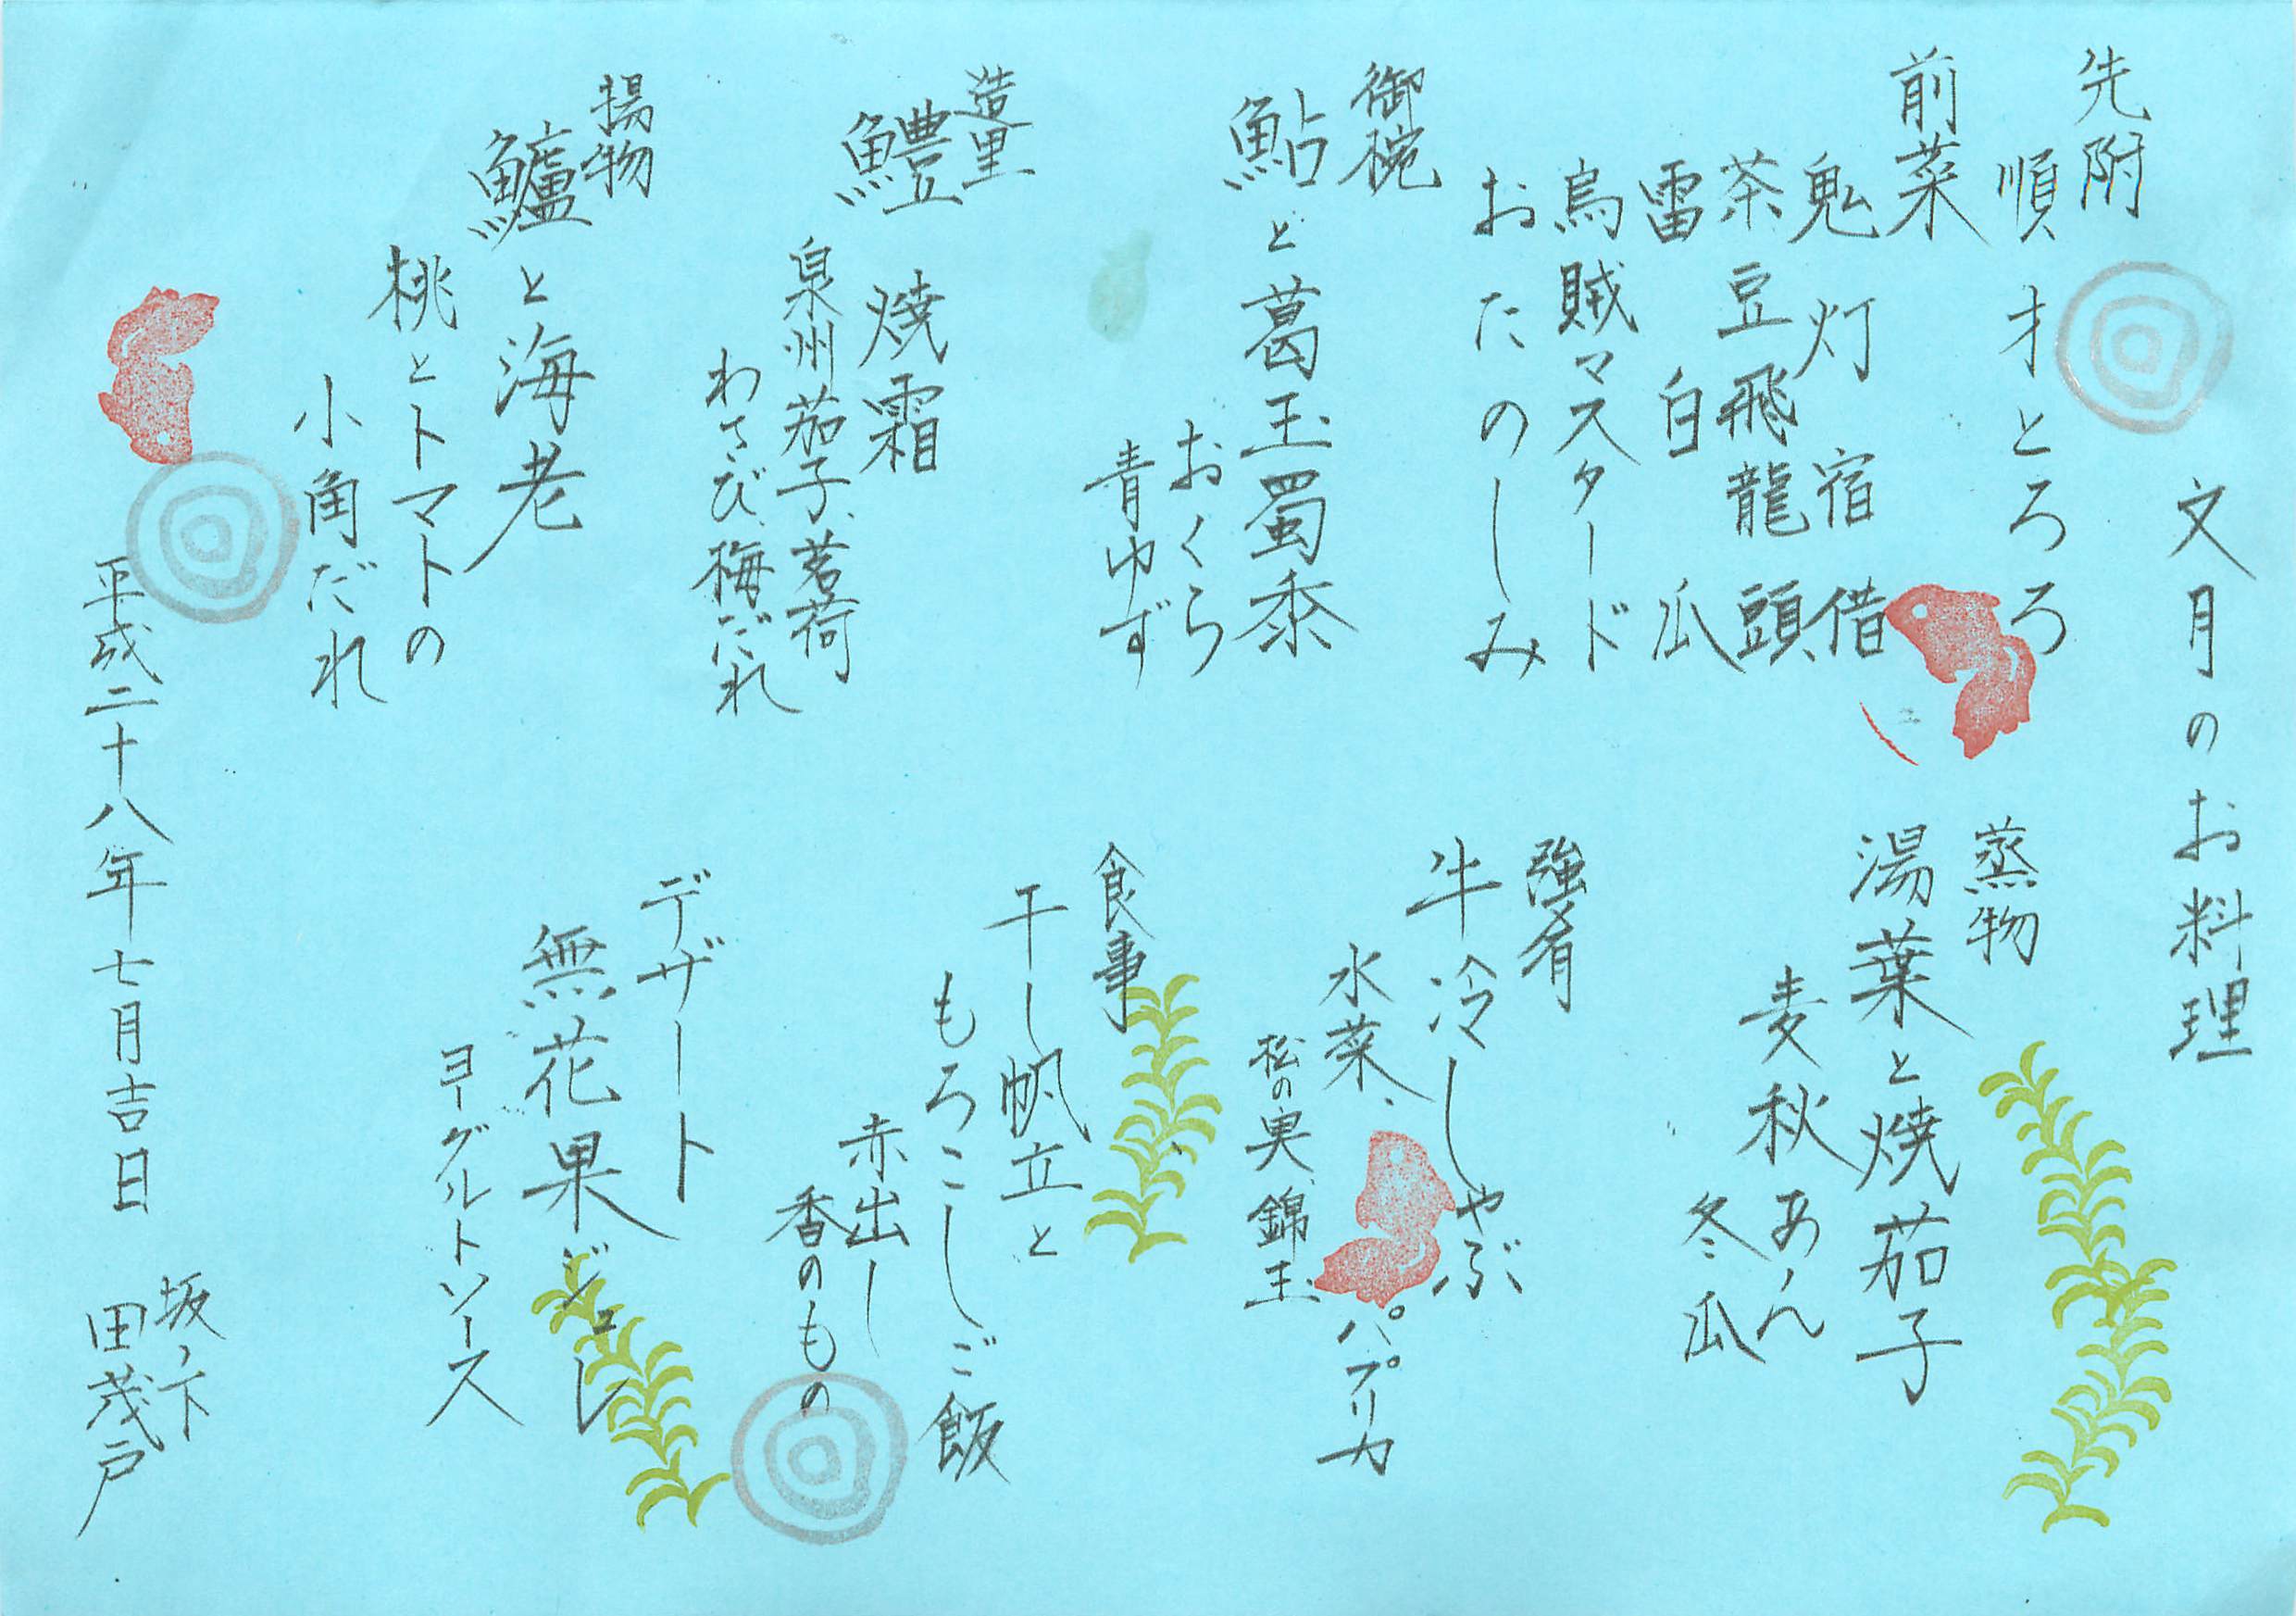 文月のお料理
先附
順才とろろ
前菜
鬼灯宿借
茶豆飛龍頭
雷白瓜
烏賊マスタード
おたのしみ
御椀
鮎と葛玉蜀黍
おくら
青ゆず
造里
鱧焼霜
泉州茄子、茗荷
わさび、梅だれ
揚物
鱸と海老
桃とトマトの
小角だれ
蒸物
湯葉と焼茄子
麦秋あん
冬瓜
強肴
牛冷しゃぶ
水菜、パプリカ
松の実、錦玉
食事
干し帆立と
もろこしご飯
赤出し
香のもの
デザート
無花果ジュレ
ヨーグルトソース
平成二十八年七月吉日
坂ノ下
田茂戸